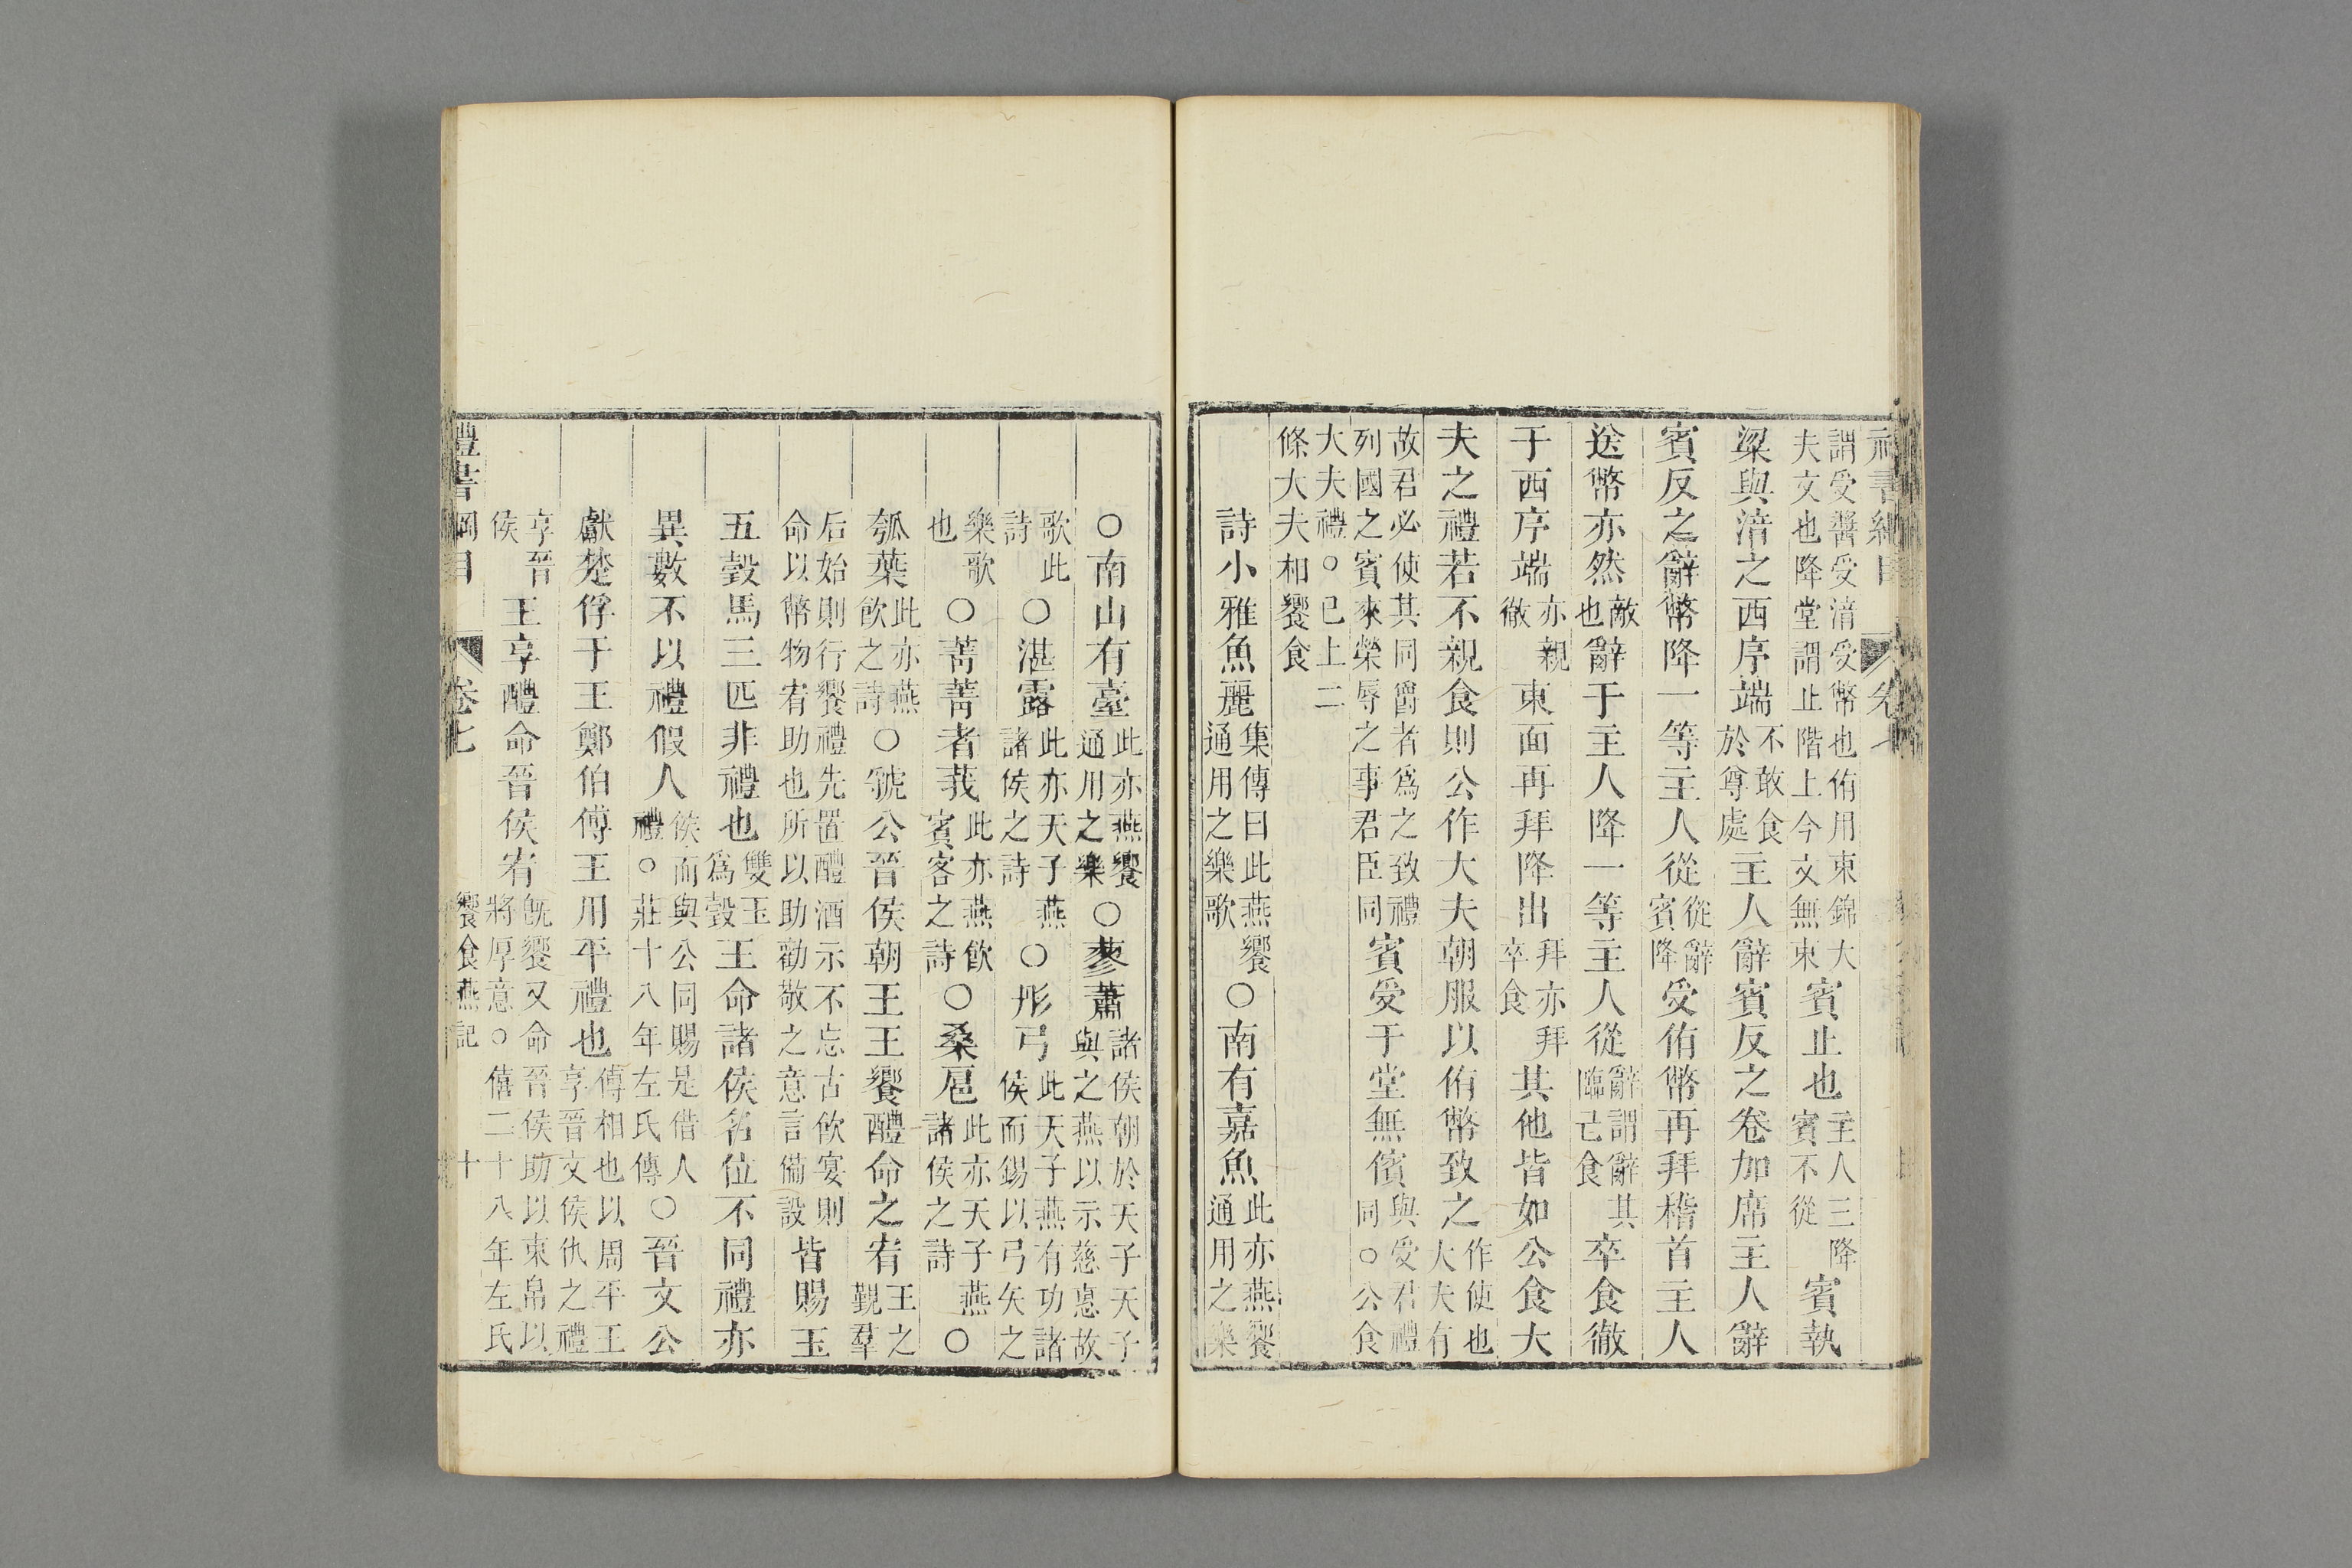 禮書綱目 卷七
謂受醬受湆受幣也侑用束錦大夫文也降堂謂止階上今文無束賓止也主人三降賓不從賓執
粱與湆之西序端不敢食於尊處主人辭賓反之卷加席主人辭
賓反之辭幣降一等主人從從辭賓降受侑幣再拜稽首主人
送幣亦然敵也辭于主人降一等主人從辭謂辭其臨己食卒食徹
于西序端亦親徹東面再拜降出拜亦拜卒食其他皆如公食大
夫之禮若不親食則公作大夫朝服以侑幣致之作使也大夫有
故君必使其同爵者爲之致禮列國之賓來榮辱之事君臣同賓受于堂無儐與受君禮同○公食
大夫禮○已上二條大夫相饗食
詩小雅魚麗集傳曰此燕饗通用之樂歌○南有嘉魚此亦燕饗通用之樂
○南山有臺此亦燕饗通用之樂○蓼蕭諸侯朝於天子天子與之燕以示慈惠故
歌此詩○湛露此亦天子燕諸侯之詩○彤弓此天子燕有功諸侯而錫以弓矢之
樂歌也○菁菁者莪此亦燕飲賓客之詩○桑扈此亦天子燕諸侯之詩○
瓠葉此亦燕飲之詩○虢公晉侯朝王王饗醴命之宥王之覲羣
后始則行饗禮先置醴酒示不忘古飲宴則命以幣物宥助也所以助勸敬之意言備設皆賜玉
五瑴馬三匹非禮也雙玉爲瑴王命諸侯名位不同禮亦
異數不以禮假人侯而與公同賜是借人禮○莊十八年左氏傳○晉文公
獻楚俘于王鄭伯傅王用平禮也傅相也以周平王享晉文侯仇之禮
享晉侯王享醴命晉侯宥旣饗又命晉侯助以束帛以將厚意○僖二十八年左氏
禮書綱目 卷七 饗食燕記 十